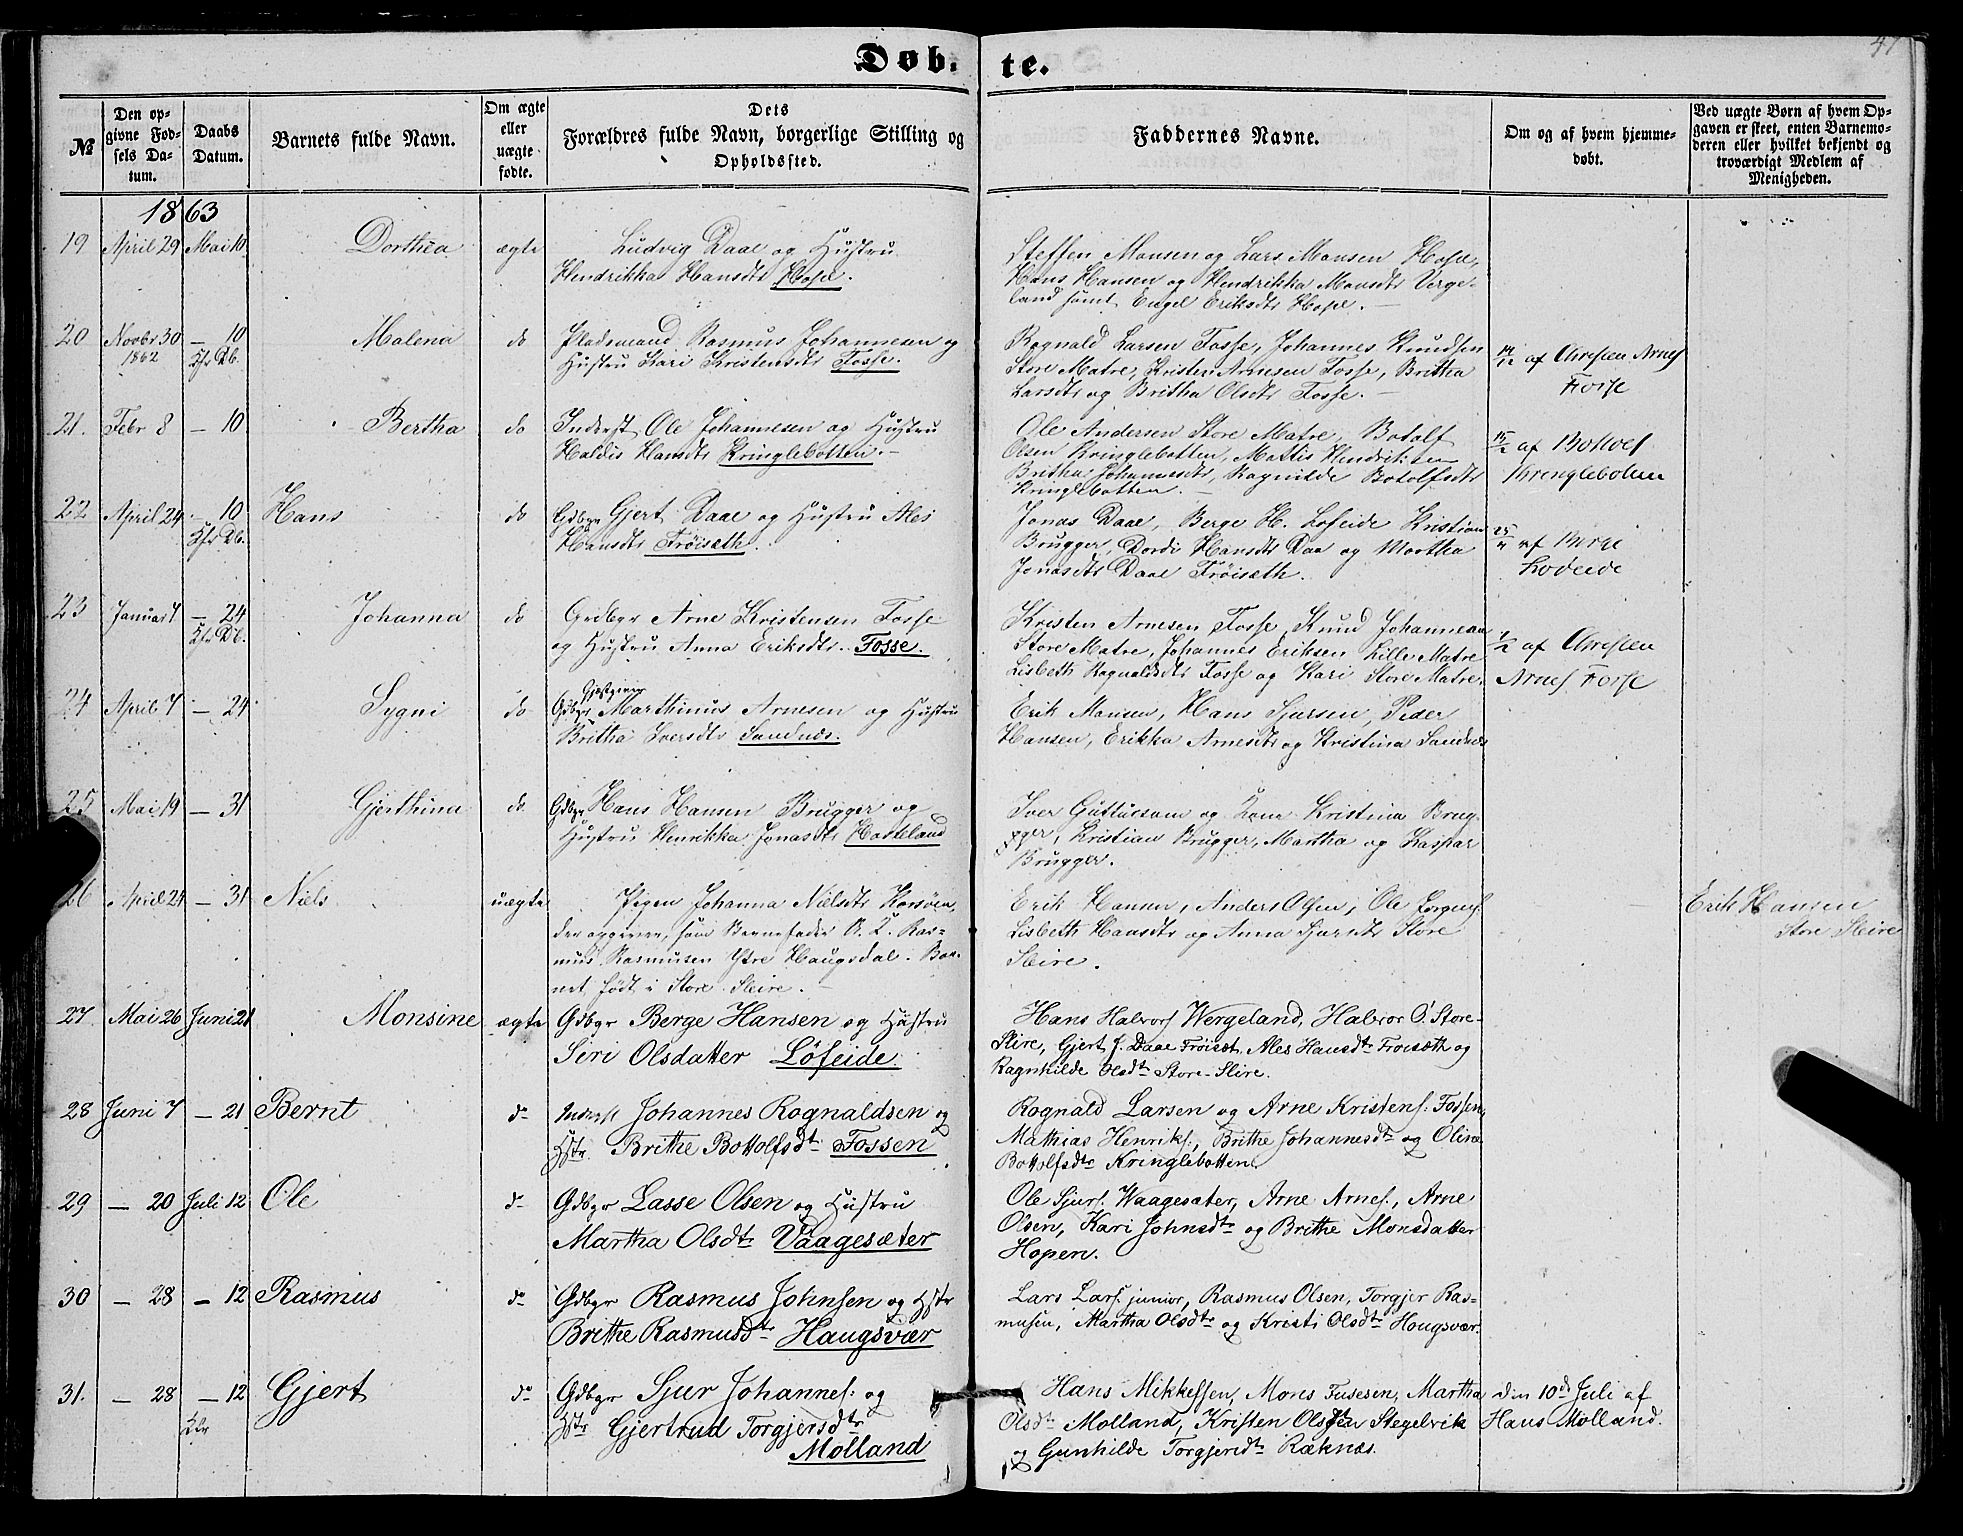 Døb- te.
47
№
Den op-
givne Fød-
sels Da-
tum.
Daabs
Datum.
Barnets fulde Navn.
Om ægte
eller
uægte
fødte.
Dets
Forældres fulde Navn, borgerlige Stilling og
Opholdssted.
Faddernes Navne.
Om og af hvem hjemme-
døbt.
Ved uægte Børn af hvem Op-
gaven er skeet, enten Barnemo-
deren eller hvilket bekjendt og
troværdigt Medlem af
Menigheden.
1863
19 April 29 Mai 10 Dorthea ægte Ludvig Daae og Hustru
Hendrikka Hansdtr Hope.
Steffen Monsen og Lars Monsen Hope,
Hans Hansen og Hendrikka Monsdtr Verge-
land samt Engel Eriksdtr Hope.
20 Novbr 30 1862 — 10 Malena do Pladsmand Rasmus Johannesen og
Hustru Kari Kristensdtr Fosse.
Rognald Larsen Fosse, Johannes Knudsen
Store Matre, Kristen Arnesen Fosse, Britha
Larsdtr og Britha Olsdtr Fosse.
af Christen Arnes
Fosse
21. Febr 8 — 10. Bertha do Inderst Ole Johannesen og Hustru
Haldis Hansdtr Kringlebotten.
Ole Andersen Store Matre, Botolf
Olsen Kringlebotten, Mattis Hendriksen
Britha Johannesdtr, Ragnilde Botolfsdtr
Kringlebotten.
15/2 af Bottolf
Kringlebotten
22 April 24 — 10 Hans do Gdbgr Gjert Daae og Hustru Ales
Hansdtr Frøiseth.
Jonas Daae, Berge H. Løfeide Kristian
Brugger, Dordi Hansdtr Daa og Martha
Jonasdtr Daae Frøiseth.
25/4 af Berge
Løveide
23 Januar 7 — 24 Johanna do Grdbgr Arne Kristensen Fosse
og Hustru Anna Eriksdtr. Fosse.
Kristen Arnesen Fosse, Knud Johannesen
Store Matre, Johannes Eriksen Lille Matre
Lisbeth Rognaldsdtr Fosse og Kari Store Matre.
af Christen
Arnes Fosse
24 April 7 — 24 Sygni do Gdbgr Gjestgiver Marthinus Arnesen og Hustru
Britha Iversdtr Sandnæs.
Erik Monsen, Hans Sjursen, Peder
Hansen, Erikka Arnesdtr og Kristina Sandnæs
25 Mai 19 — 31 Gjerthina do Gdbgr Hans Hansen Brugger og
Hustru Henrikka Jonasdtr Haveland
Iver Guttucsom og Kone Kristina Brug-
ger, Kristian Brugger, Martha og Kaspar
Brugger.
26 April 24 — 31 Niels uægte Pigen Johanna Nielsdtr Korsøen,
den opgivne, som Barnefader U. K. Ras-
mus Rasmusen Ytre Haugsdal. Bar-
net født i Store Sleire.
Erik Hansen, Anders Olsen, Ole Jorgens.
Lisbeth Hansdtr og Anna Sjursdtr Store
Sleire.
Erik Hansen
Store Sleire
27 Mai 26 Juni 21 Monsine ægte Gdbgr Berge Hansen og Hustru
Siri Olsdatter Løfeide.
Hans Halvors Wergeland, Halvor O. Store-
Slire, Gjert J. Daae Frøiset, Ales Hansdtr Frøisæth og
Ragnhilde Olsdtr Store-Slire.
28 Juni 7 — 21 Bernt do Inderst Johannes Rognaldsen og
Hstr. Brithe Bottolfsdtr Fossen
Rognald Larsen og Arne Kristens. Fossen,
Mathias Henriks., Brithe Johannesdtr og Oline
Bottolfsdtr Kringlebotten.
29 — 20 Juli 12 Ole do Gdbgr Lasse Olsen og Hustru
Martha Olsdtr Vaagesæter
Ole Sjurs. Waagesæter, Arne Arnes., Arne
Olsen, Kari Johnsdtr og Brithe Monsdatter
Hopen.
30 — 28 — 12 Rasmus do Gdbgr Rasmus Johnsen og Hstr
Brithe Rasmusdtr Haugsvær
Lars Lars. junior, Rasmus Olsen, Torgjer Ras-
musen, Martha Olsdtr og Kristi Olsdtr Hougsvær.
31. — 28 — 12 Gjert do Gdbgr Sjur Johannes. og
Hstr Gjertrud Torgjersdtr
Molland
Hans Mikkelsen, Mons Fusesen, Martha
Olsdtr Molland, Kristen Olsdtr Stegelvik
og Gunhilde Torgjersdtr Ræknæs.
den 10de Juli af
Hans Molland.